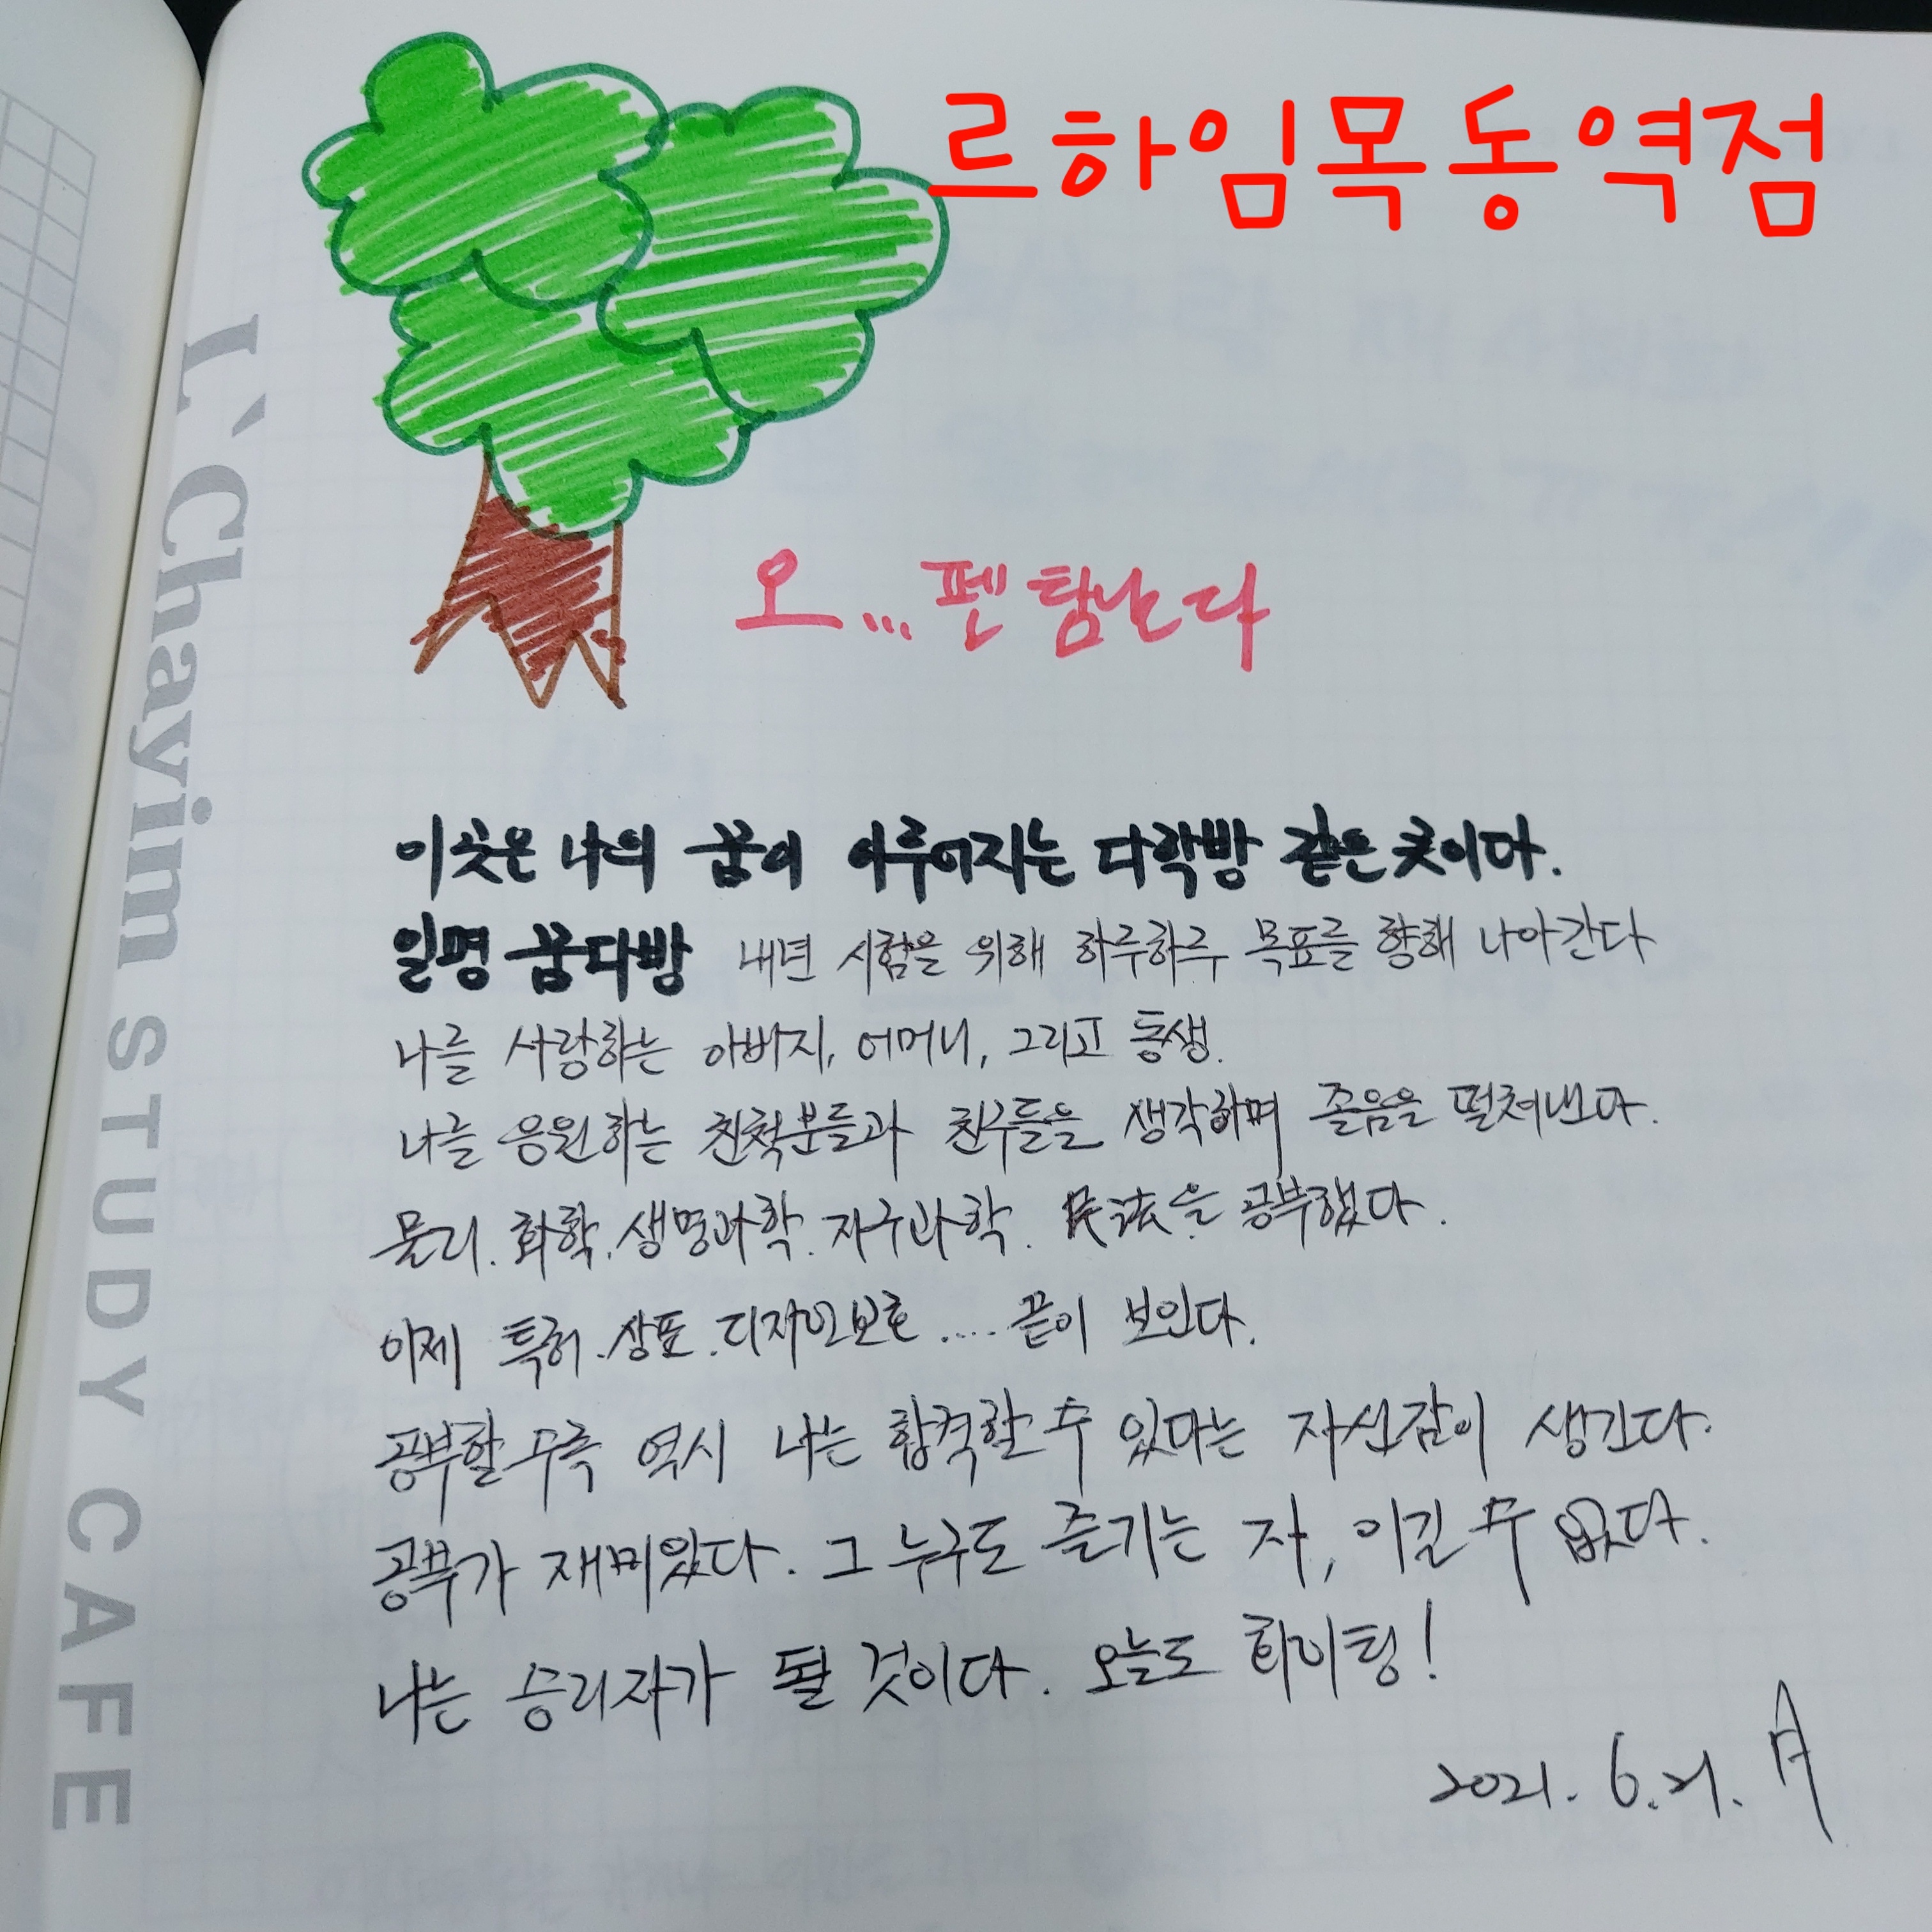 르하임목동역점
L'Chayim STUDY CAFE
오...펜 탐난다
이곳은 나의 꿈이 이루어지는 다락방 같은 곳이다.
일명 꿈다방 내년 시험을 위해 하루하루 목표를 향해 나아간다
나를 사랑하는 아버지, 어머니, 그리고 동생.
나를 응원하는 친척분들과 친구들을 생각하며 졸음을 떨쳐낸다.
물리. 화학. 생명과학. 지구과학. 民法을 공부했다.
이제 특허.상표.디자인보호 .... 끝이 보인다.
공부할수록 역시 나는 합격할 수 있다는 자신감이 생긴다.
공부가 재미있다. 그 누구도 즐기는 자, 이길 수 없다.
나는 승리자가 될 것이다. 오늘도 화이팅!
2021. 6. 21. A